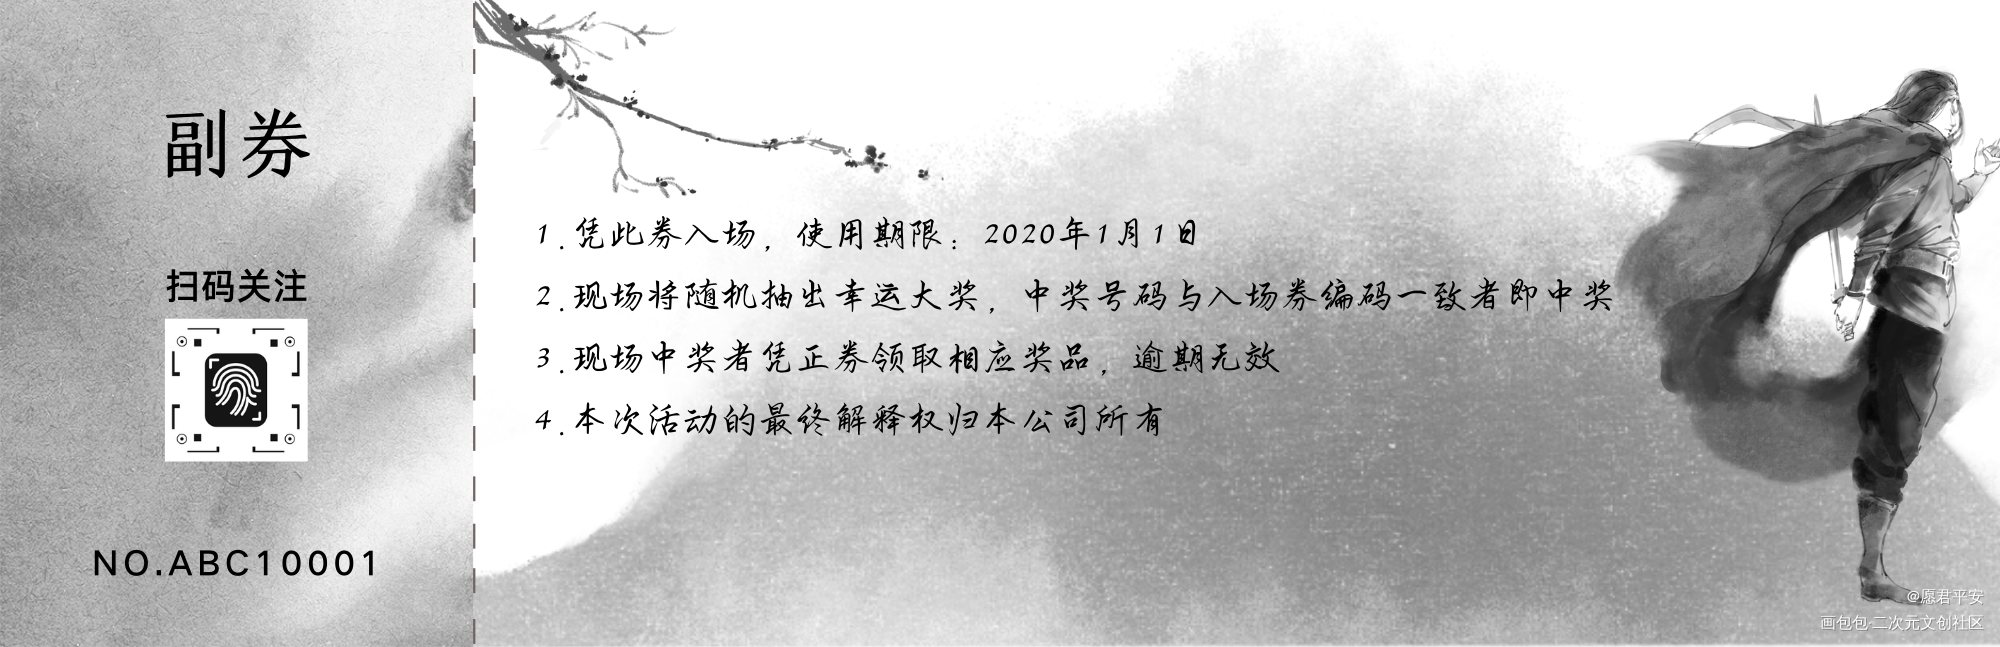 副券
扫码关注
NO.ABC10001
1.凭此券入场，使用期限：2020年1月1日
2.现场将随机抽出幸运大奖，中奖号码与入场券编码一致者即中奖
3.现场中奖者凭正券领取相应奖品，逾期无效
4.本次活动的最终解释权归本公司所有
@愿君平安
画包包·二次元文创社区